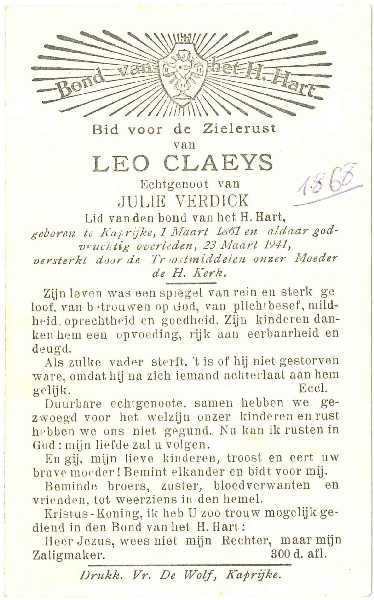 Bond van het H. Hart
Bid voor de Zielerust
van
LEO CLAEYS
Echtgenoot van
JULIE VERDICK
Lid van den bond van het H. Hart,
geboren te Kaprijke, 1 Maart 1861 en aldaar god-
vruchtig overleden, 23 Maart 1941,
versterkt door de Troostmiddelen onzer Moeder
de H. Kerk.
1868
Zijn leven was een spiegel van rein en sterk ge
loof, van betrouwen op God, van plichtbesef, mild-
heid, oprechtheid en goedheid. Zijn kinderen dan-
ken hem een opvoeding, rijk aan eerbaarheid en
deugd.
Als zulke vader sterft, 't is of hij niet gestorven
ware, omdat hij na zich iemand achterlaat aan hem
gelijk. Eccl.
Duurbare echtgenoote, samen hebben we ge-
zwoegd voor het welzijn onzer kinderen en rust
hebben we ons niet gegund. Nu kan ik rusten in
God: mijn liefde zal u volgen.
En gij, mijn lieve kinderen, troost en eert uw
brave moeder! Bemint elkander en bidt voor mij.
Beminde broers, zuster, bloedverwanten en
vrienden, tot weerziens in den hemel.
Kristus-Koning, ik heb U zoo trouw mogelijk ge-
diend in den Bond van het H. Hart:
Heer Jezus, wees niet mijn Rechter, maar mijn
Zaligmaker. 300 d. afl.
Drukk. Vr. De Wolf, Kaprijke.